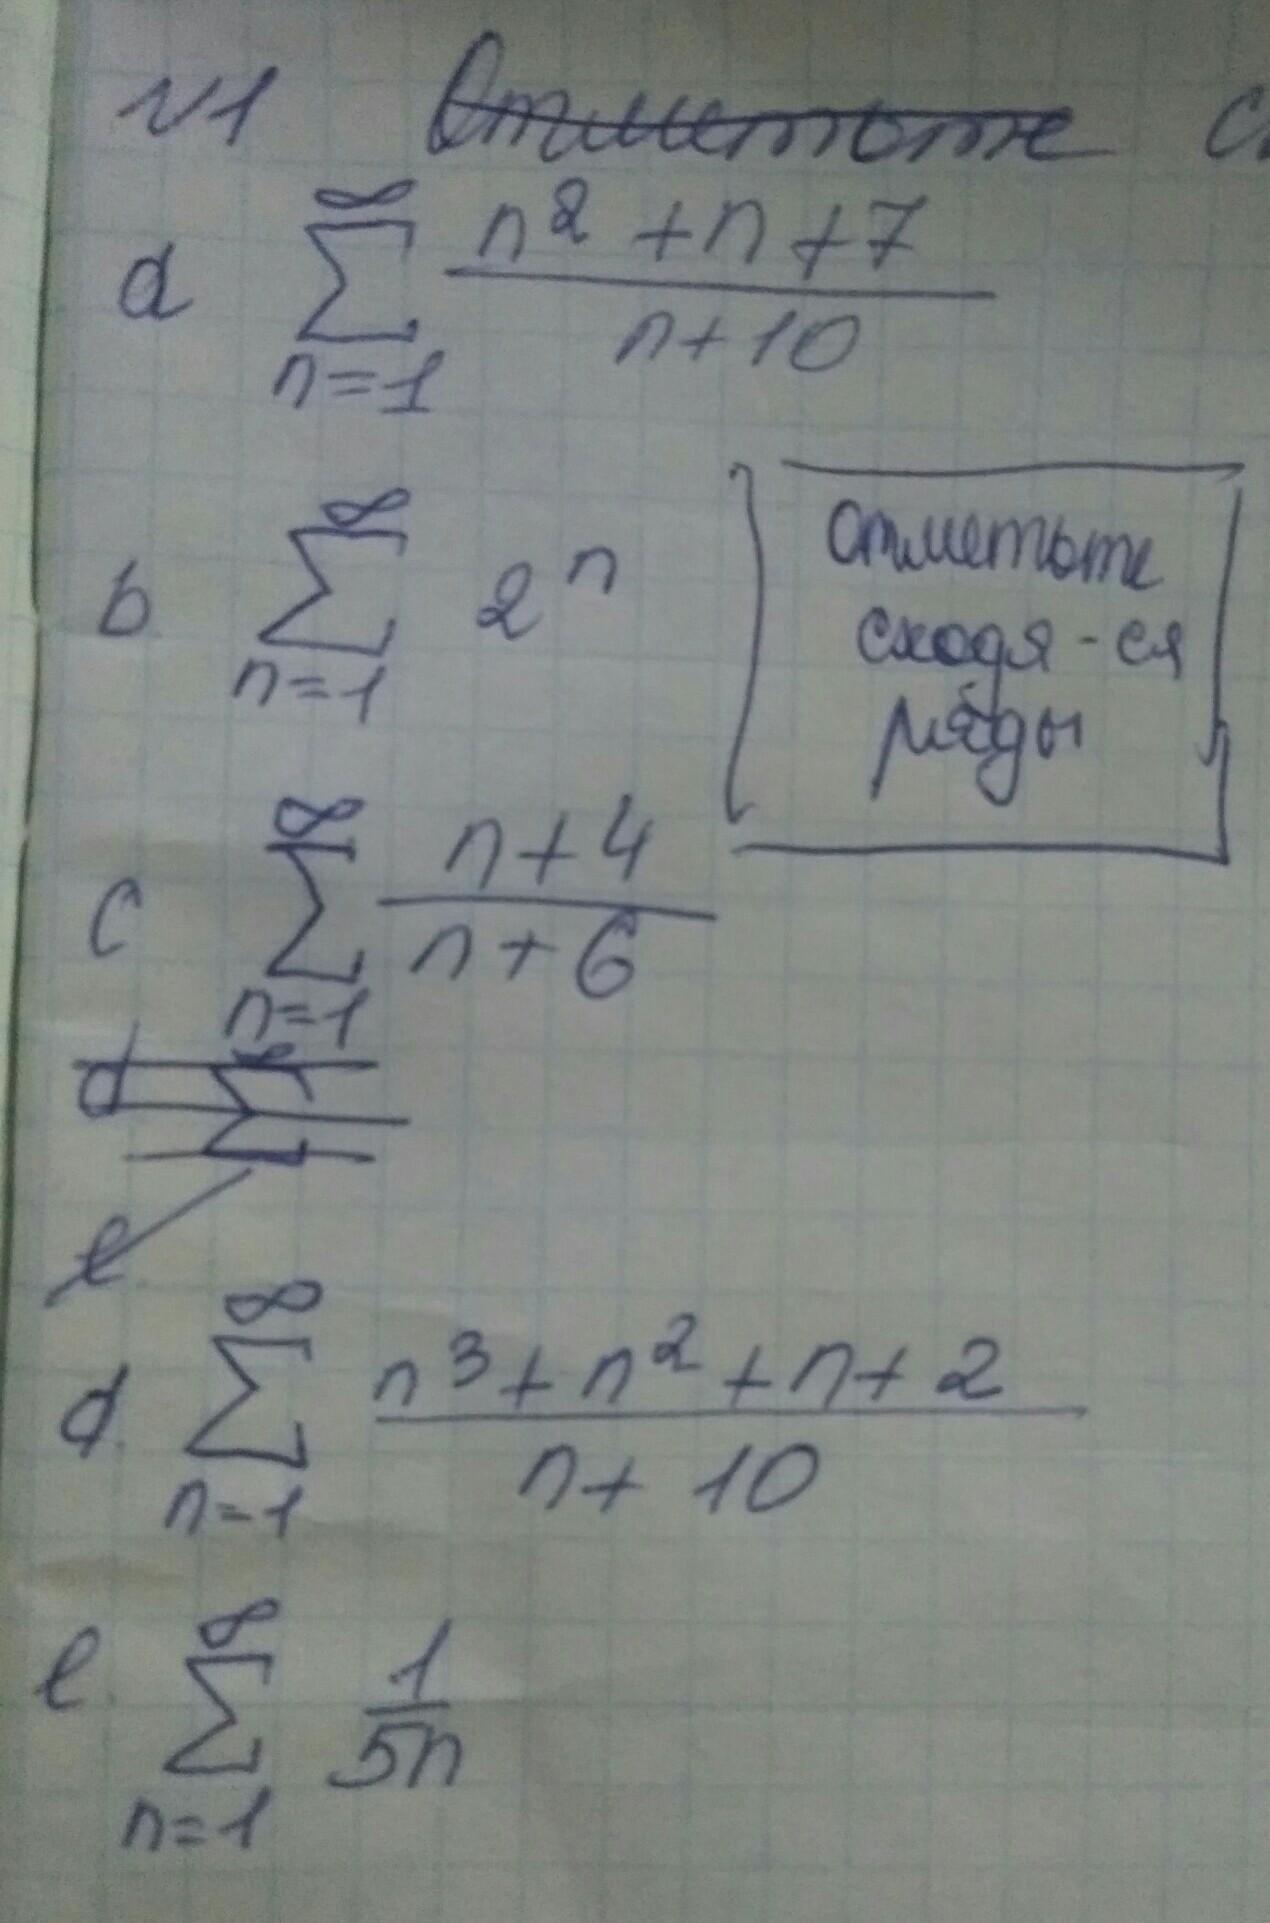 №1 Отметьте
a ∑ n=1 ∞ (n² + n + 7)/(n + 10)
b. ∑ n=1 ∞ 2ⁿ
Отметьте
сходя-ся
ряды
c ∑ n=1 ∞ (n + 4)/(n + 6)
d ∑ ∞
e.
d. ∑ n=1 ∞ (n³ + n² + n + 2)/(n + 10)
e. ∑ n=1 ∞ 1/(5n)